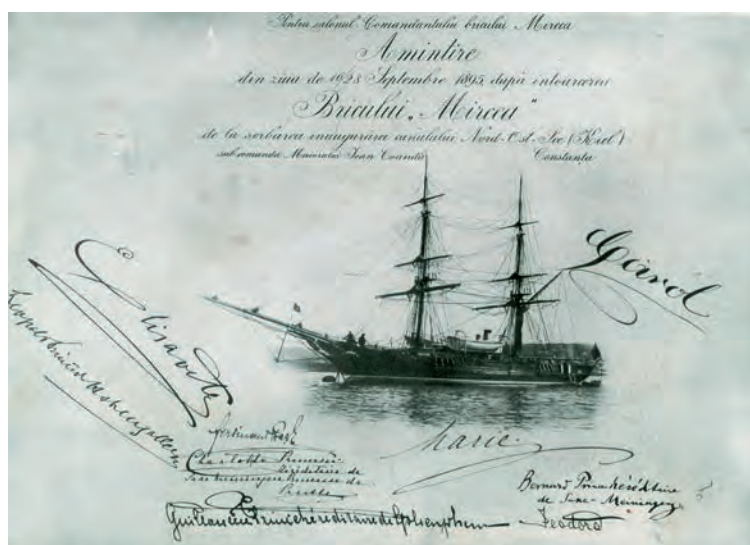 Pentru salonul Comandantului bricului Mircea
Amintire
din ziua de 16/28 Septembre 1895, după intoarcerea
Bricului „Mircea“
de la serbarea inaugurăra canalului Nord-Ost-See (Kiel)
sub comanda Maiorului Ioan Coandă
Constanța
Carol
Elisaveta
Leopold
Hohenzollern
Marie.
Charlotte Princesse
Héréditaire de
Saxe Meiningen Princesse de
Prusse
Bernard Prince héréditaire
de Saxe-Meiningen
Prince héréditaire de Hohenzollern